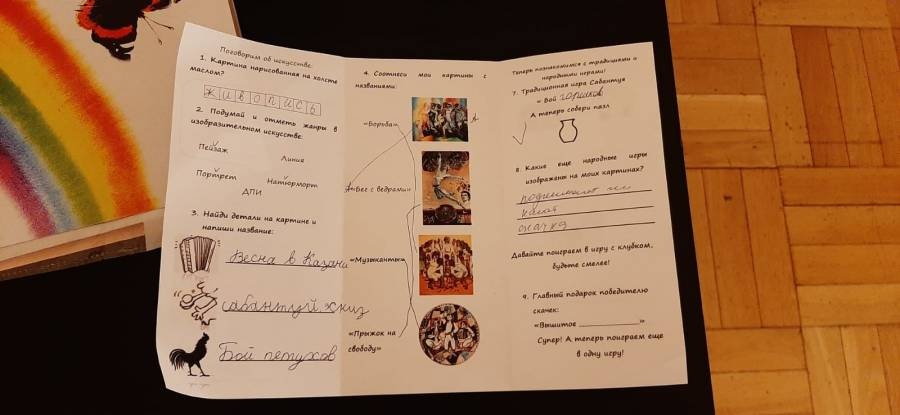 Поговорим об искусстве:
1. Картина нарисованная на холсте
маслом?
ЖИВОПИСЬ
2. Подумай и отметь жанры в
изобразительном искусстве:
Пейзаж
Линия
Портрет
Натюрморт
ДПИ
3. Найди детали на картине и
напиши название:
Весна в Казани
сабантуй. эскиз
Бой петухов
4. Соотнеси мои картины с
названиями:
«Борьба»
«Бег с ведрами»
«Музыканты»
«Прыжок на
свободу»
Теперь познакомимся с традициями и
народными играми!
7. Традиционная игра Сабантуя
« Бой горшков
А теперь собери пазл
8. Какие еще народные игры
изображены на моих картинах?
скачка
Давайте поиграем в игру с клубком,
будьте смелее!
9. Главный подарок победителю
скачек:
«Вышитое ____________»
Супер! А теперь поиграем еще
в одну игру!